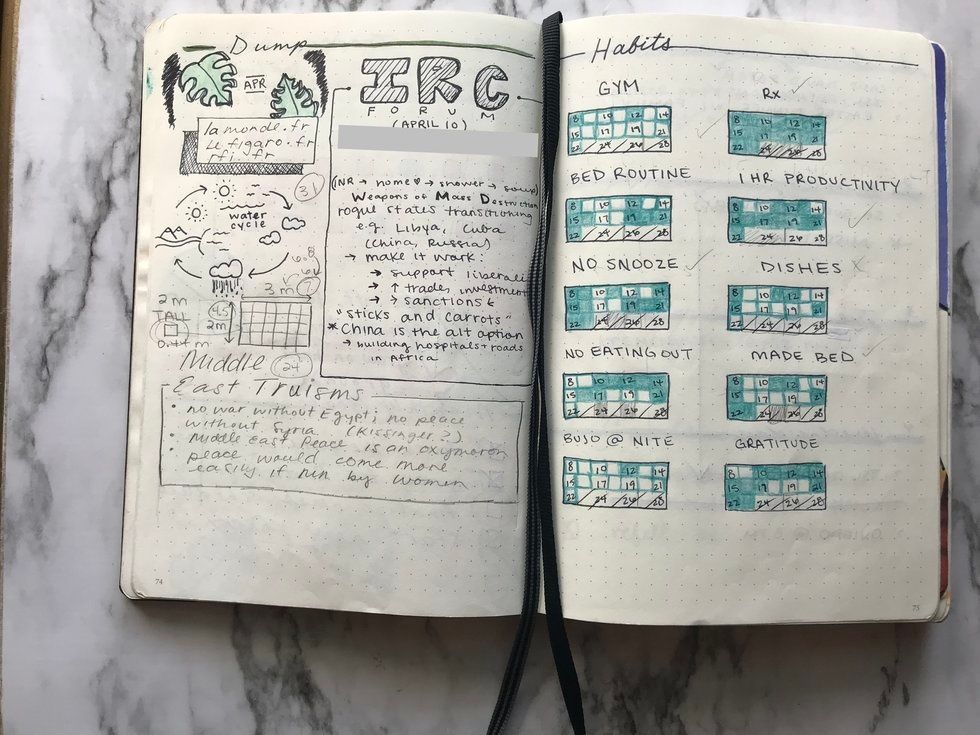 Dump
APR
lamonde.fr
Le figaro.fr
rfi.fr
31
water
cycle
3 m
7
2 m
TALL
4.5
2m
0.44 m
IRC
FORUM
(APRIL 10)
(NR → home ♡ → shower → soup)
Weapons of Mass Destruction
rogue states transitioning
e.g. Libya, Cuba
(China, Russia)
→ make it work:
→ support liberali
→ ↑ trade, investment
→ > sanctions &
"sticks and carrots"
* China is the alt option
→ building hospitals + roads
in Africa
Middle 24
East Truisms
• no war without Egypt; no peace
without Syria (Kissinger?)
• Middle East Peace is an oxymoron
• peace would come more
easily if run by women
74
Habits
GYM
8 10 12 14
15 17 19 21
22 24 26 28
Rx ✓
8 10 12 14
15 17 19 21
24 26 28
BED ROUTINE
8 10 12 14
15 17 19 21
22 24 26 28
1 HR PRODUCTIVITY
8 10 12 14
15 17 19 21
24 26 28
NO SNOOZE ✓
8 10 12 14
15 17 19 21
22 24 26 28
DISHES X
8 10 12 14
15 17 19 21
22 24 26 28
NO EATING OUT
8 10 12 14
15 17 19 21
22 24 26 28
MADE BED ✓
8 10 12 14
15 17 19 21
22 24 26 28
BUJO @ NITE
8 10 12 14
15 17 19 21
22 24 26 28
GRATITUDE
8 10 12 14
15 17 19 21
22 24 26 28
75